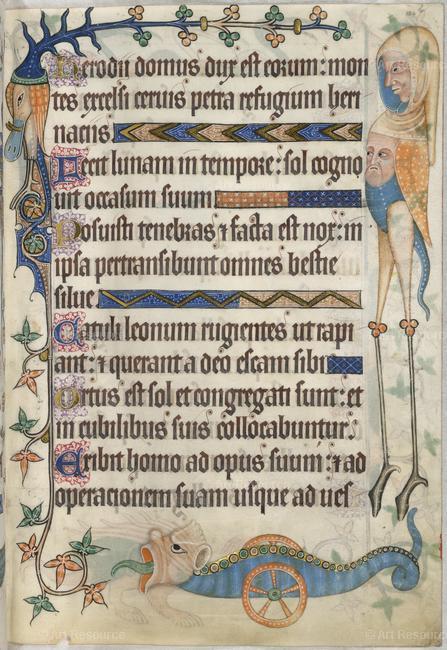 Herodii domus dux est eorum: mon
tes excelsi ceruis petra refugium heri
naciis
Fecit lunam in tempore: sol cogno
uit occasum suum
Posuisti tenebras ⁊ facta est nox: in
ipsa pertransibunt omnes bestie
silue
Catuli leonum rugientes ut rapi
ant: ⁊ querant a deo escam sibi
Ortus est sol et congregati sunt: et
in cubilibus suis collocabuntur.
Exibit homo ad opus suum: ⁊ ad
operacionem suam usque ad ues
© Art Resource
© Art Resource